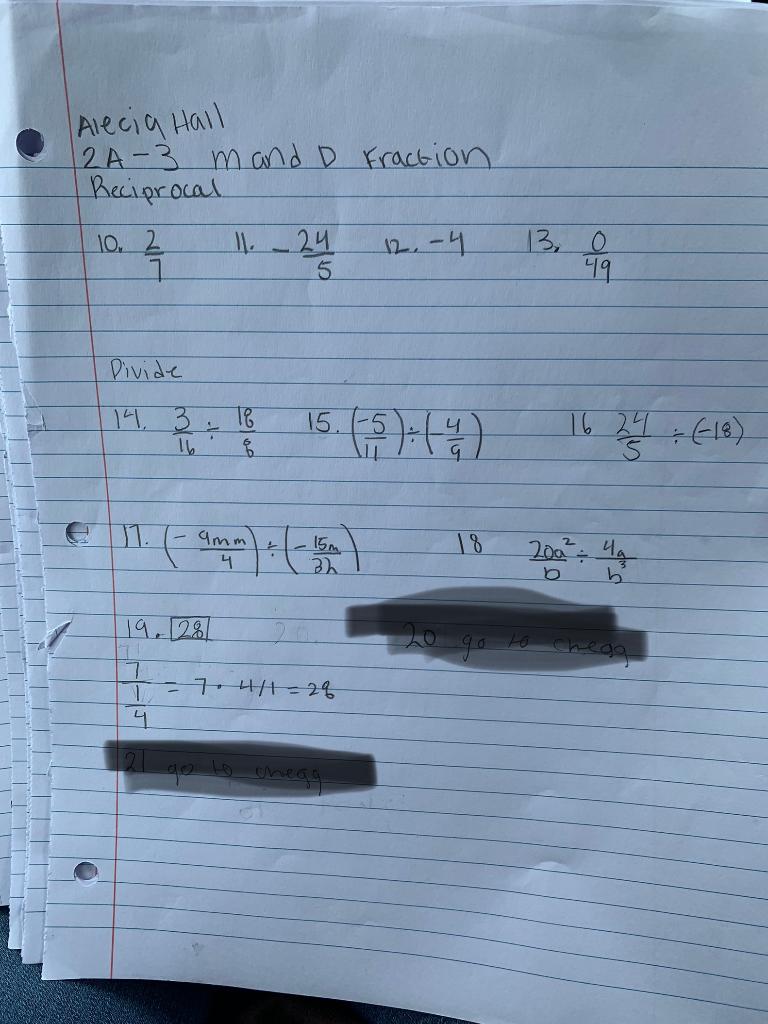 Alecia Hall
2A-3 m and D Fraction
Reciprocal
10. 2/7 11. -24/5 12. -4 13. 0/49
Divide
14. 3/16 ÷ 18/8 15. (-5/11) ÷ (-4/9) 16 24/5 ÷ (-18)
17. (-9mm/4) ÷ (-15m/3h) 18 20a²/b ÷ 4a/b³
19. 28 20 go to chegg
7/(1/4) = 7 · 4/1 = 28
21 go to chegg